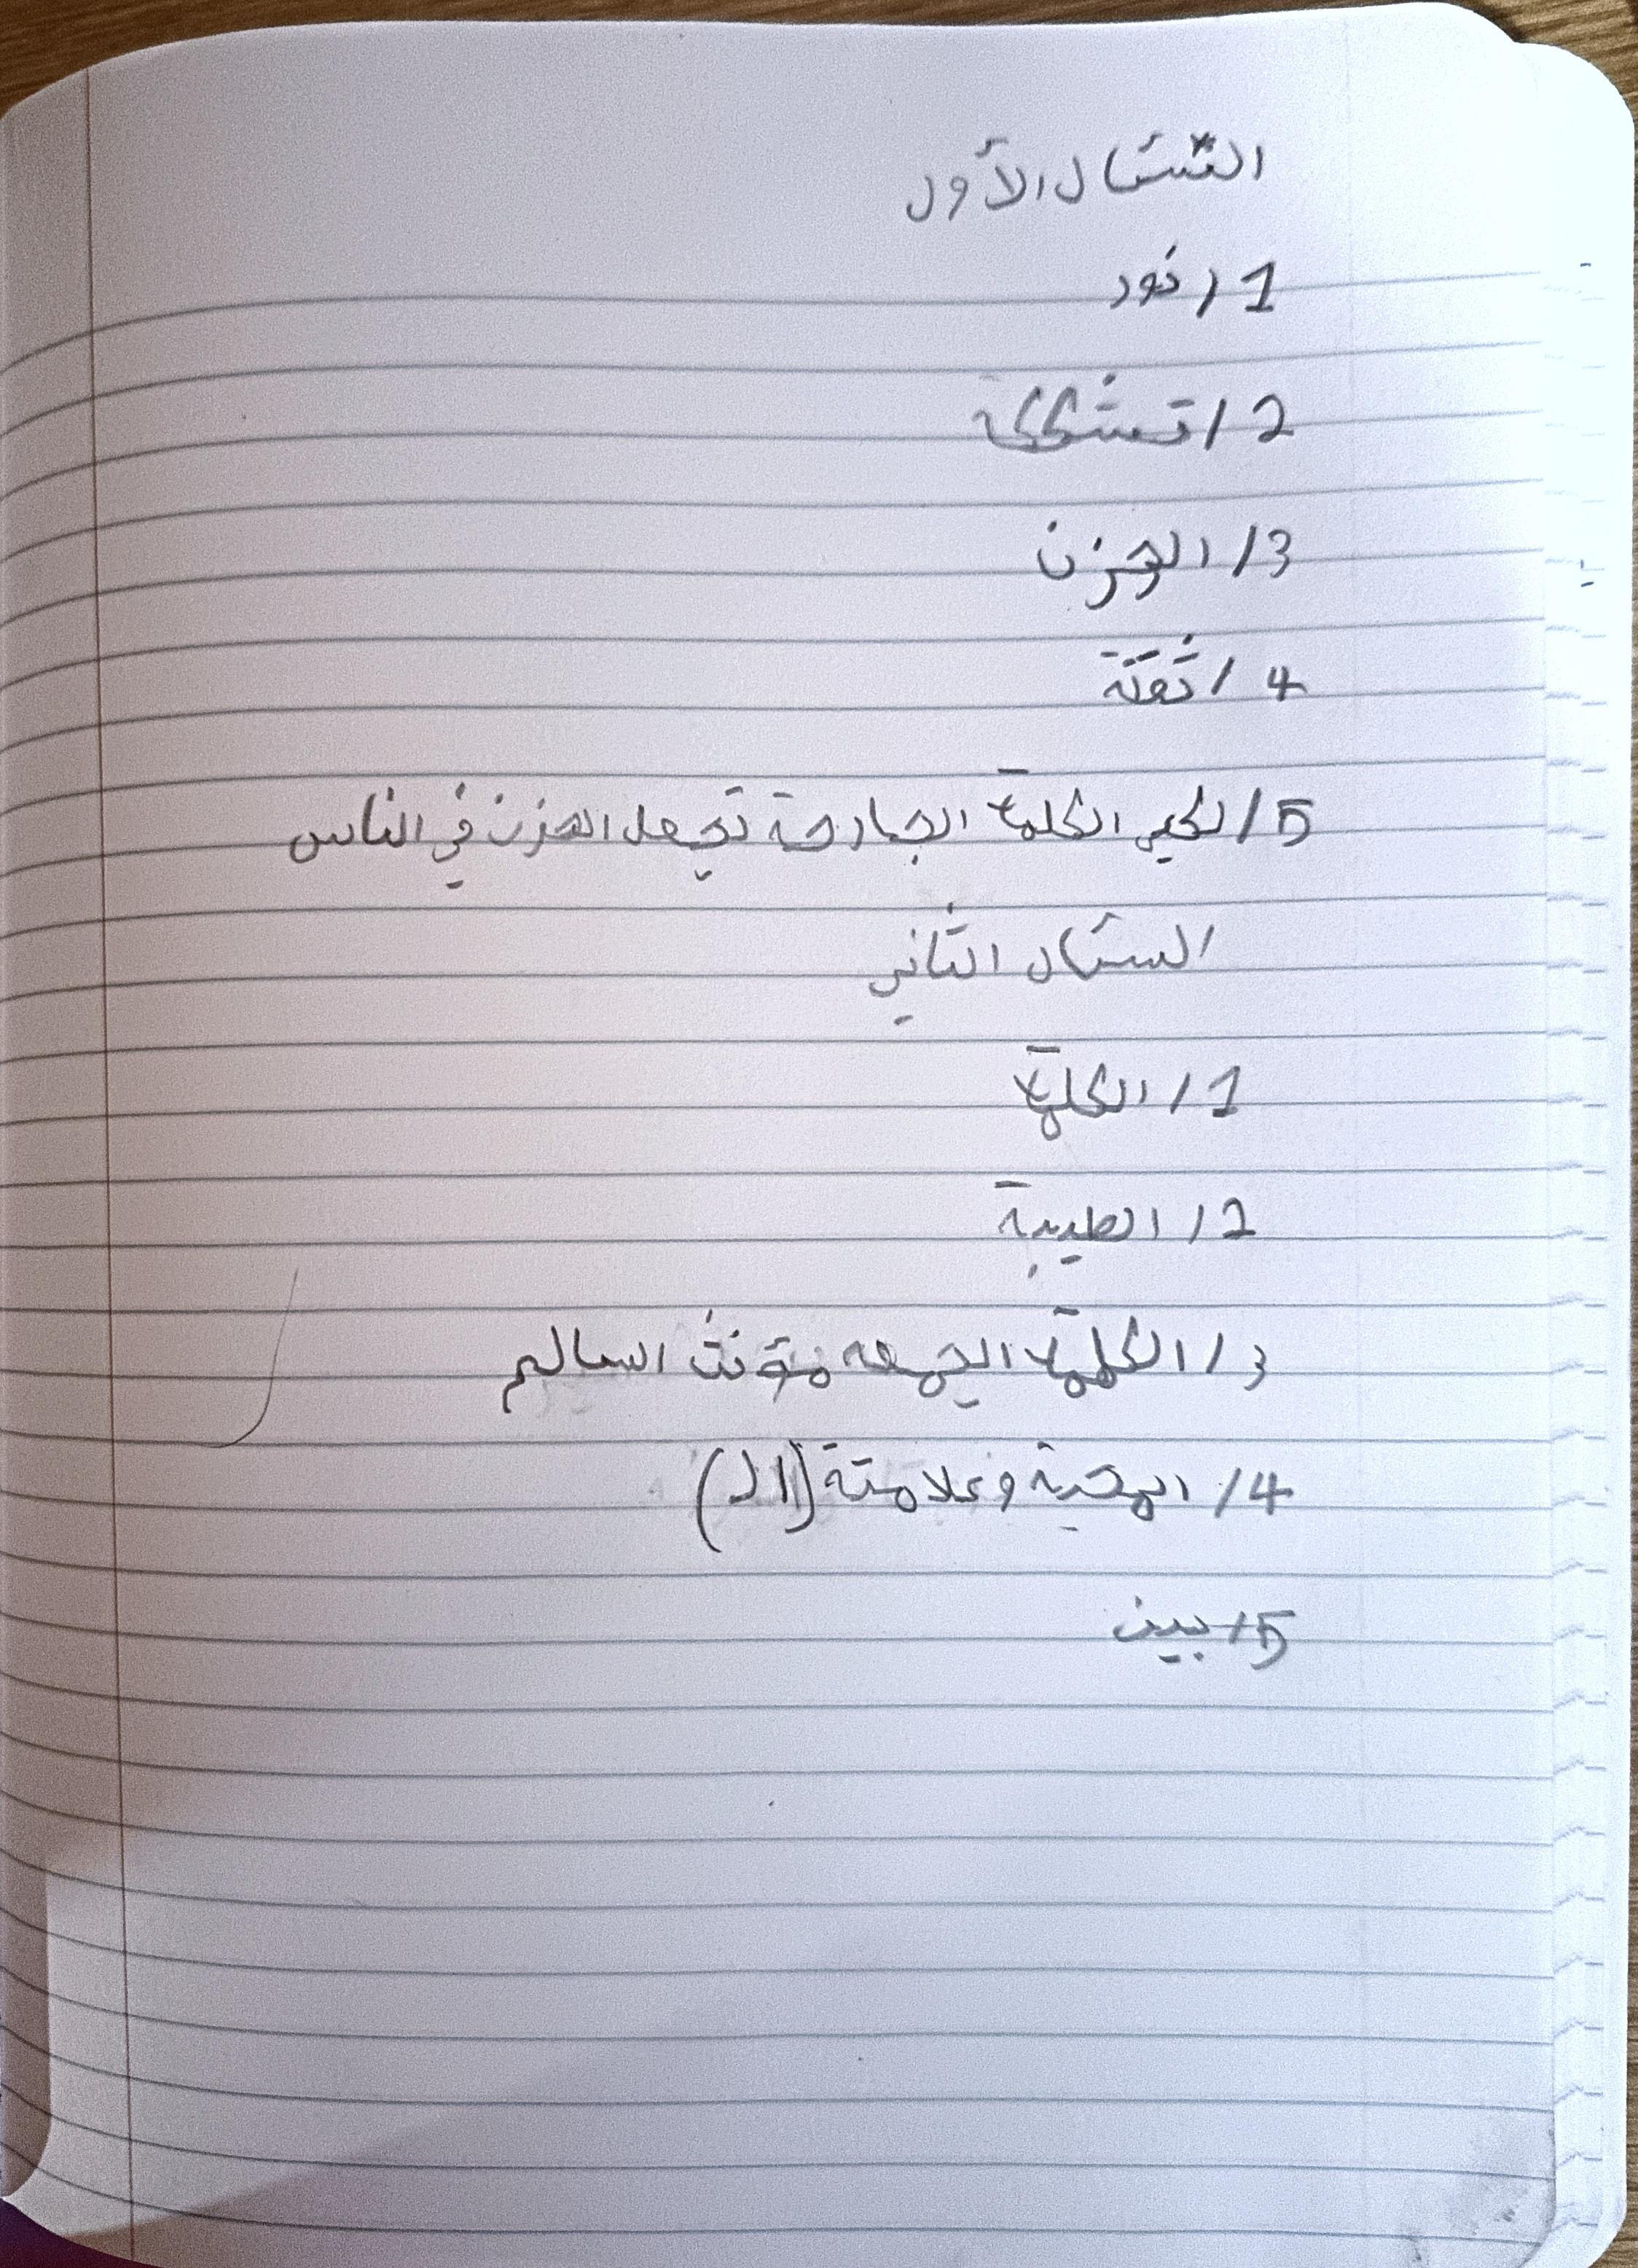 السئال الأول
1/ نور
2/
3/ الحزن
4/ ثقتة
5/ لكي الكلمة الجارحة تجعل الحزن في الناس
السئال الثاني
1/ الكلمة
2/ الطيبة
3/ الكلمة الجمعه مؤنث السالم
4/ المحبة وعلامتة (ال)
5/ بين